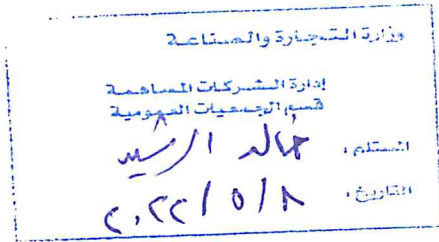 وزارة التجارة والصناعة
إدارة الشركات المساهمة
قسم الجمعيات العمومية
المستلم : خالد الرشيد
التاريخ : ٢٠٢٢/٥/٨